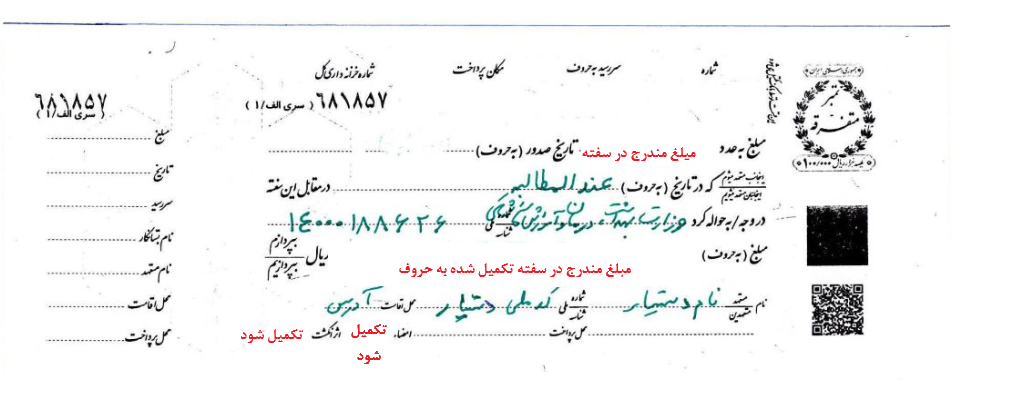 جمهوری اسلامی ایران
تمبر
متفرقه
یکصد هزار ریال ۱۰۰/۰۰۰
شماره سررسید به حروف مکان پرداخت شماره خزانه داری کل
۶۸۱۸۵۷ ( سری الف/۱ )
۶۸۱۸۵۷
( سری الف/۱ )
مبلغ به عدد مبلغ مندرج در سفته تاریخ صدور (به حروف)
اینجانب متعهد میشوم
اینجانبان متعهد میشویم
که در تاریخ (به حروف) عندالمطالبه در مقابل این سفته
در وجه/به حواله کرد وزارت بهداشت، درمان و آموزش پزشکی شماره ملی
شناسه
۱۴۰۰۰۱۸۸۶۲۶
مبلغ (به حروف) ریال بپردازم
بپردازیم
مبلغ مندرج در سفته تکمیل شده به حروف
نام متعهد
متعهدین
نام دستیار شماره ملی
شناسه
کد ملی دستیار محل اقامت آدرس
محل پرداخت امضاء تکمیل شود اثر انگشت تکمیل شود
مبلغ
تاریخ
سررسید
نام بستانکار
نام متعهد
محل اقامت
محل پرداخت